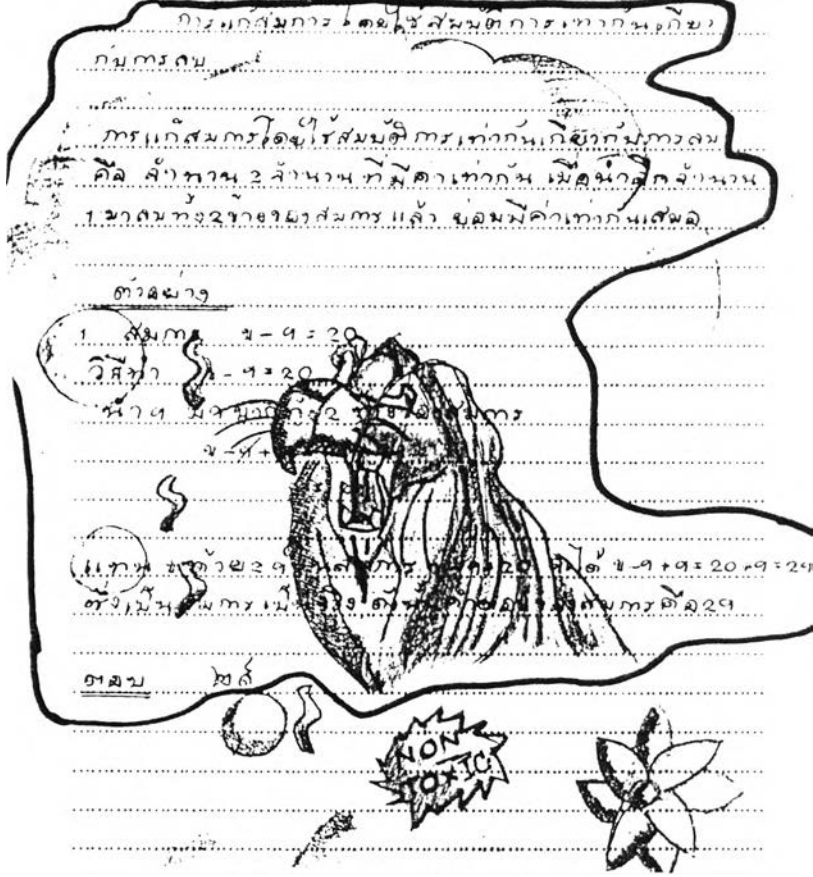 การแก้สมการโดยใช้สมบัติการเท่ากันเกี่ยว
กับการลบ
การแก้สมการโดยใช้สมบัติการเท่ากันเกี่ยวกับการลบ
คือ จำนวน 2 จำนวน ที่มีค่าเท่ากัน เมื่อนำอีกจำนวน
1 มาลบทั้ง 2 ข้างของสมการ แล้ว ย่อมมีค่าเท่ากันเสมอ
ตัวอย่าง
1 สมการ ข - 9 = 20
วิธีทำ - 9 = 20
นำ 9 2 สมการ
ข - 9 +
แทน ด้วย 29 20 ได้ ข - 9 + 9 = 20 + 9 = 29
ซึ่งเป็นสมการ สมการคือ 29
ตอบ ๒๙
NON
TOXIC